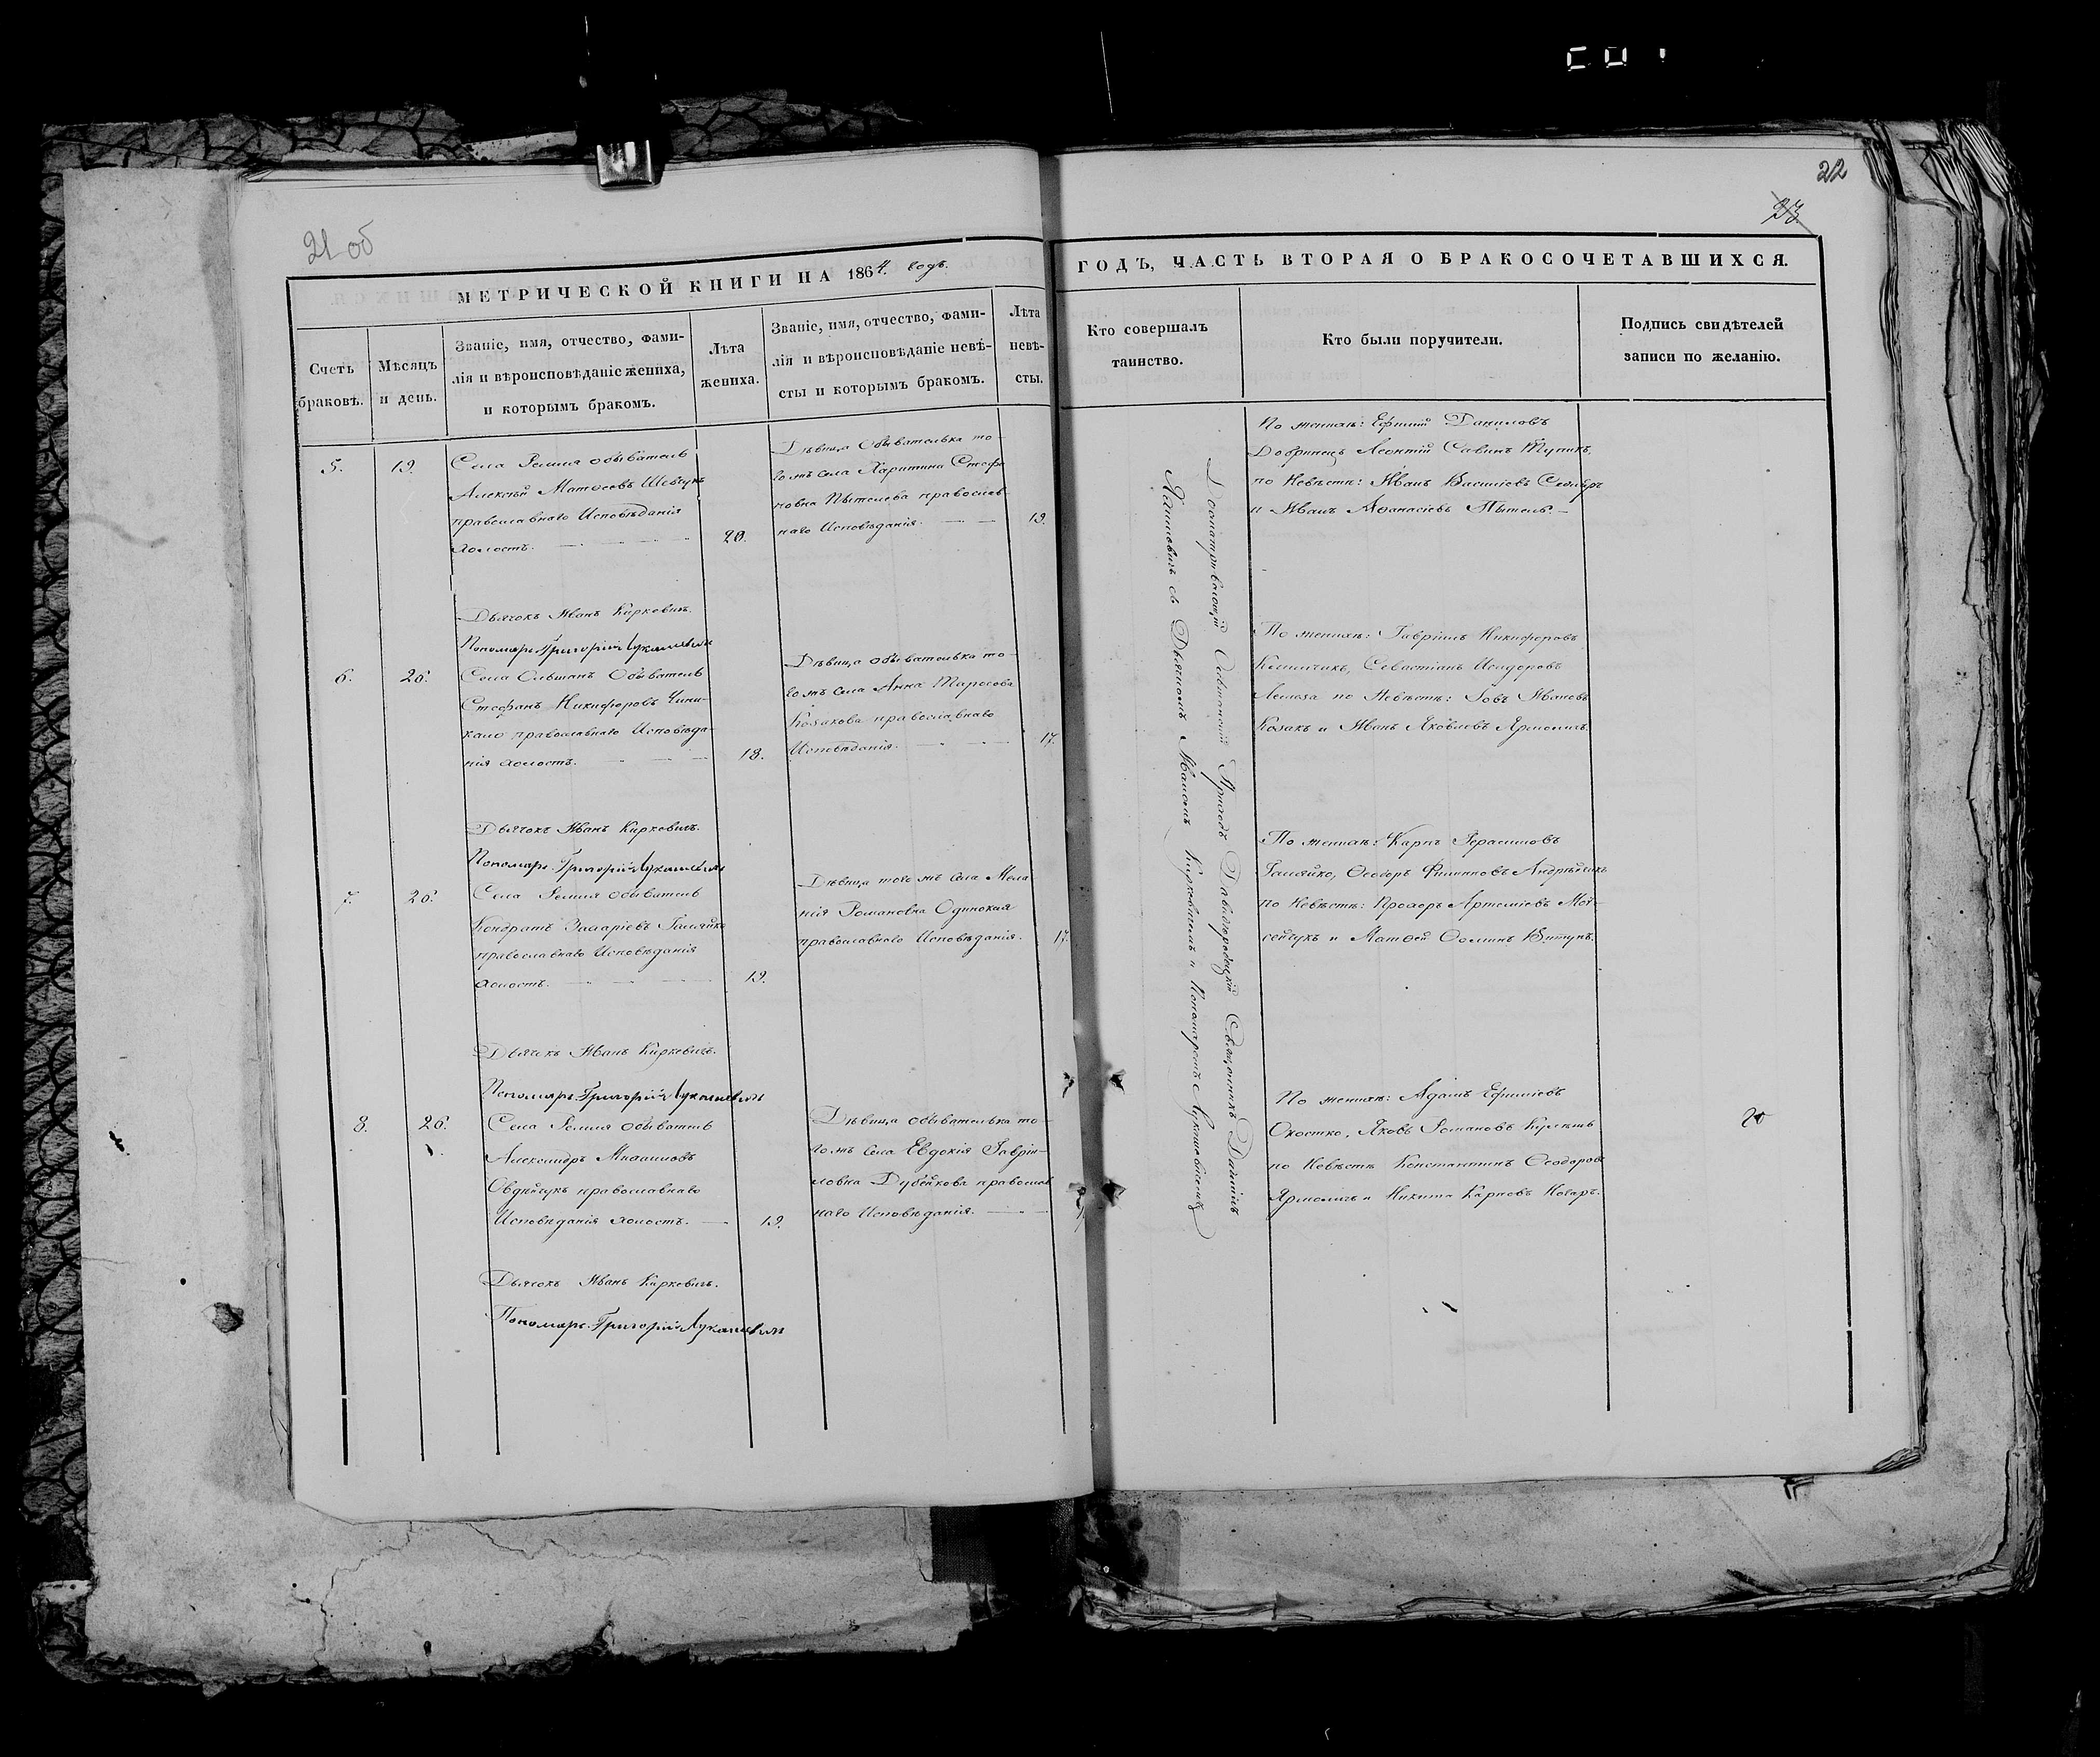 22
23
21 об
МЕТРИЧЕСКОЙ КНИГИ НА 1864. годъ.
Счетъ браковъ.
Мѣсяцъ и день.
Званіе, имя, отчество, фами-
лія и вѣроисповѣданіе жениха,
и которымъ бракомъ.
Лѣта жениха.
Званіе, имя, отчество, фами-
лія и вѣроисповѣданіе невѣ-
сты и которымъ бракомъ.
Лѣта невѣ-
сты.
5.
19.
Села Ремля обыватель
Алексѣй Матѳеевъ Шевчукъ
православнаго Исповѣданія
холостъ.
20.
Дѣвица Обывателька то-
гожъ села Харитина Стефа
новна Пытелева православ-
наго Исповѣданія.
19.
Дьячокъ Иванъ Киркевичъ.
Пономарь Григорій Лукашевичъ
6.
26.
Села Ольшанъ Обыватель
Стефанъ Никифоровъ
православнаго Исповѣда-
нія холостъ.
18.
Дѣвица обывателька то-
гожъ села Анна Тарасова
Козакова православнаго
Исповѣданія.
17.
Дьячокъ Иванъ Киркевичъ.
Пономарь Григорій Лукашевичъ
7.
26.
Села Ремля обыватель
Кондратъ Захаріевъ
православнаго Исповѣданія
холостъ.
19.
Дѣвица того жъ села Мела
нія Романовна Одинокая
православнаго Исповѣданія.
17.
Дьячокъ Иванъ Киркевичъ.
Пономарь Григорій Лукашевичъ
8.
26.
Села Ремля обыватель
Александръ Михайловъ
Овдейчукъ православнаго
Исповѣданія холостъ.
19.
Дѣвица обывателька то-
гожъ села Евдокія Гаврі-
ловна Дубейкова православ
наго Исповѣданія.
Дьячокъ Иванъ Киркевичъ.
Пономарь Григорій Лукашевичъ
ГОДЪ, ЧАСТЬ ВТОРАЯ О БРАКОСОЧЕТАВШИХСЯ.
Кто совершалъ
таинство.
Кто были поручители.
Подпись свидѣтелей
записи по желанію.
Досматривающій Ольшанскій Приходъ Давидгородецкій Священникъ Даніилъ
съ Дьячкомъ Иваномъ Киркевичемъ и Пономаремъ Лукашевичемъ
По женихѣ: Ефимій Даниловъ
Добринецъ Леонтій Савинъ Тупикъ,
по Невѣстѣ: Иванъ Василіевъ Столяръ
и Иванъ Аѳанасіевъ Пытель.
По женихѣ: Гавріилъ Никифоровъ
Климчикъ, Севастіанъ Исидоровъ
по Невѣстѣ: Іовъ Ивановъ
Козакъ и Иванъ Яковлевъ Ярмоличъ.
По женихѣ: Карпъ Герасимовъ
Ѳеодоръ Филиповъ Андрейчикъ
по Невѣстѣ: Прохоръ Артеміевъ Мой-
сейчукъ и Матѳей Ѳоминъ
По женихѣ: Адамъ Ефиміевъ
Яковъ Романовъ Кулешъ
по Невѣстѣ Константинъ Ѳеодоровъ
Ярмоличъ и Никита Карповъ